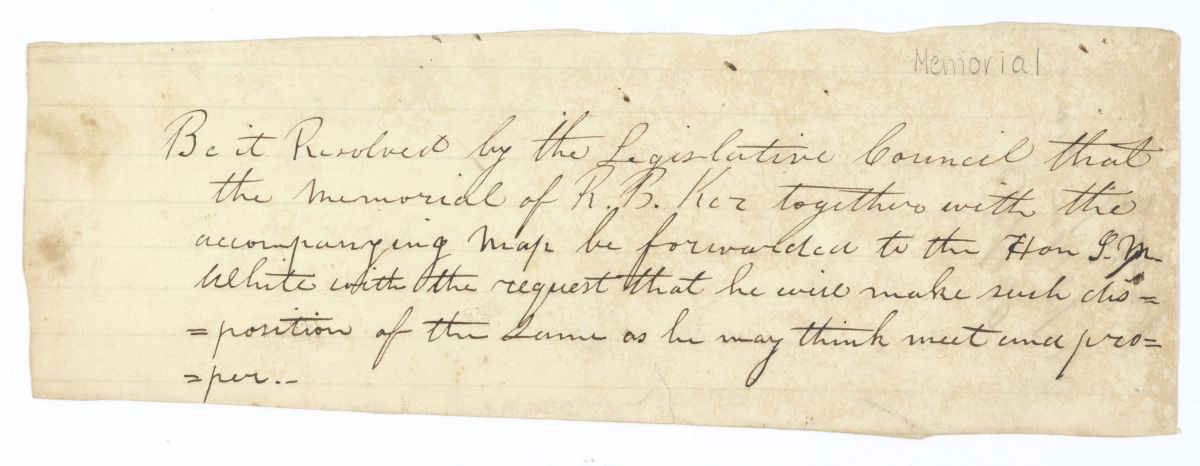 Memorial
Be it Resolved by the Legislative Council that
the memorial of R. B. Ker together with the
accompanying map be forwarded to the Hon J. M.
White with the request that he will make such dis=
=position of the same as he may think meet and pro=
=per.-